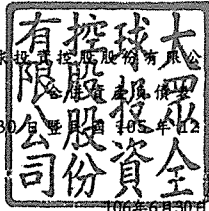 大眾全
球投資
控股股份
有限公司
投資控股股份有限公
資產負債表
30日暨民國105年12
106年6月30日